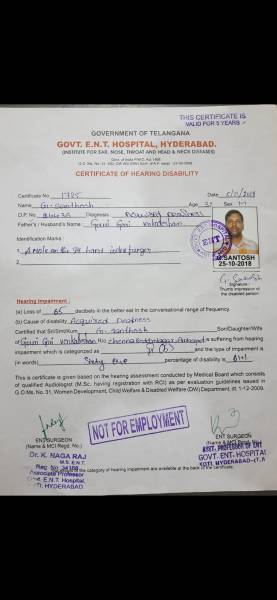 THIS CERTIFICATE IS
VALID FOR 5 YEARS
GOVERNMENT OF TELANGANA
GOVT. E.N.T. HOSPITAL, HYDERABAD.
(INSTITUTE FOR EAR, NOSE, THROAT AND HEAD & NECK DISEASES)
CERTIFICATE OF HEARING DISABILITY
Certificate No. 1785 Date
Name G. Santhosh Age Sex M
O.P. No. Diagnosis Deafness
Father's / Husband's Name
Identification Marks
1. A Mole on the hand index finger
2.
ENT
G.SANTOSH
25-10-2018
Signature
Thumb impression of
the disabled person
Hearing Impairment :
(a) Loss of 65 decibels in the better ear in the conversational range of frequency.
(b) Cause of disability Acquired Deafness
Certified that Sri/Smt/Kum G. Santhosh Son/Daughter/Wife
R/o is suffering from hearing
impairment which is categorised as and the type of impairment is
(in words) Sixty one percentage of disability is 61%
This certificate is given based on the hearing assessment conducted by Medical Board which consists
of qualified Audiologist (M.Sc. having registration with RCI) as per evaluation guidelines issued in
G.O.Ms. No. 31, Women Development, Child Welfare & Disabled Welfare (DW) Department, dt. 1-12-2009.
NOT FOR EMPLOYMENT
ENT SURGEON
(Name & MCI Regd. No.)
Dr. K. NAGA RAJ
M.S. ENT.
Reg. No.
Associate Professor
Govt. E.N.T. Hospital,
HYDERABAD
ENT SURGEON
(Name & MCI Regd. No.)
ASST. PROFESSOR OF ENT
GOVT. ENT. HOSPITAL
KOTI, HYDERABAD
of the category of hearing impairment are available at the back of the Certificate.